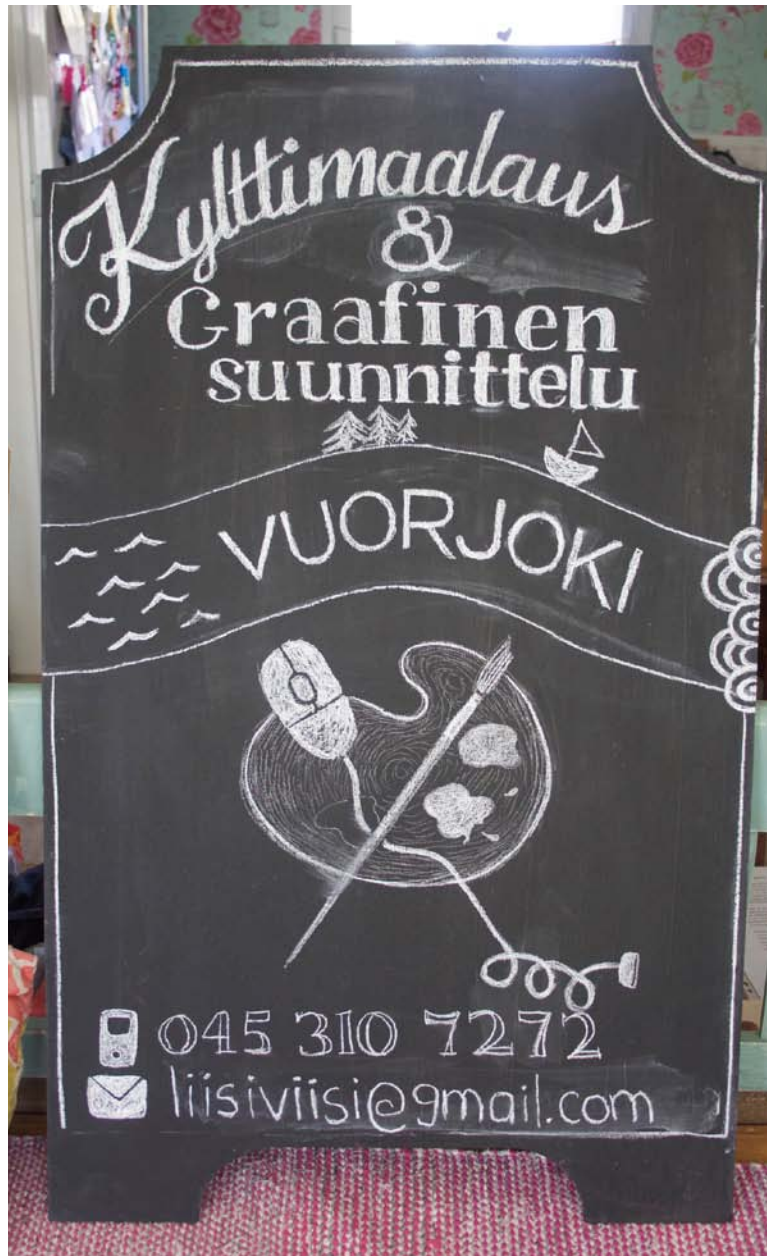 Kylttimaalaus
&
Graafinen
suunnittelu
VUORJOKI
045 310 7272
liisiviisi@gmail.com